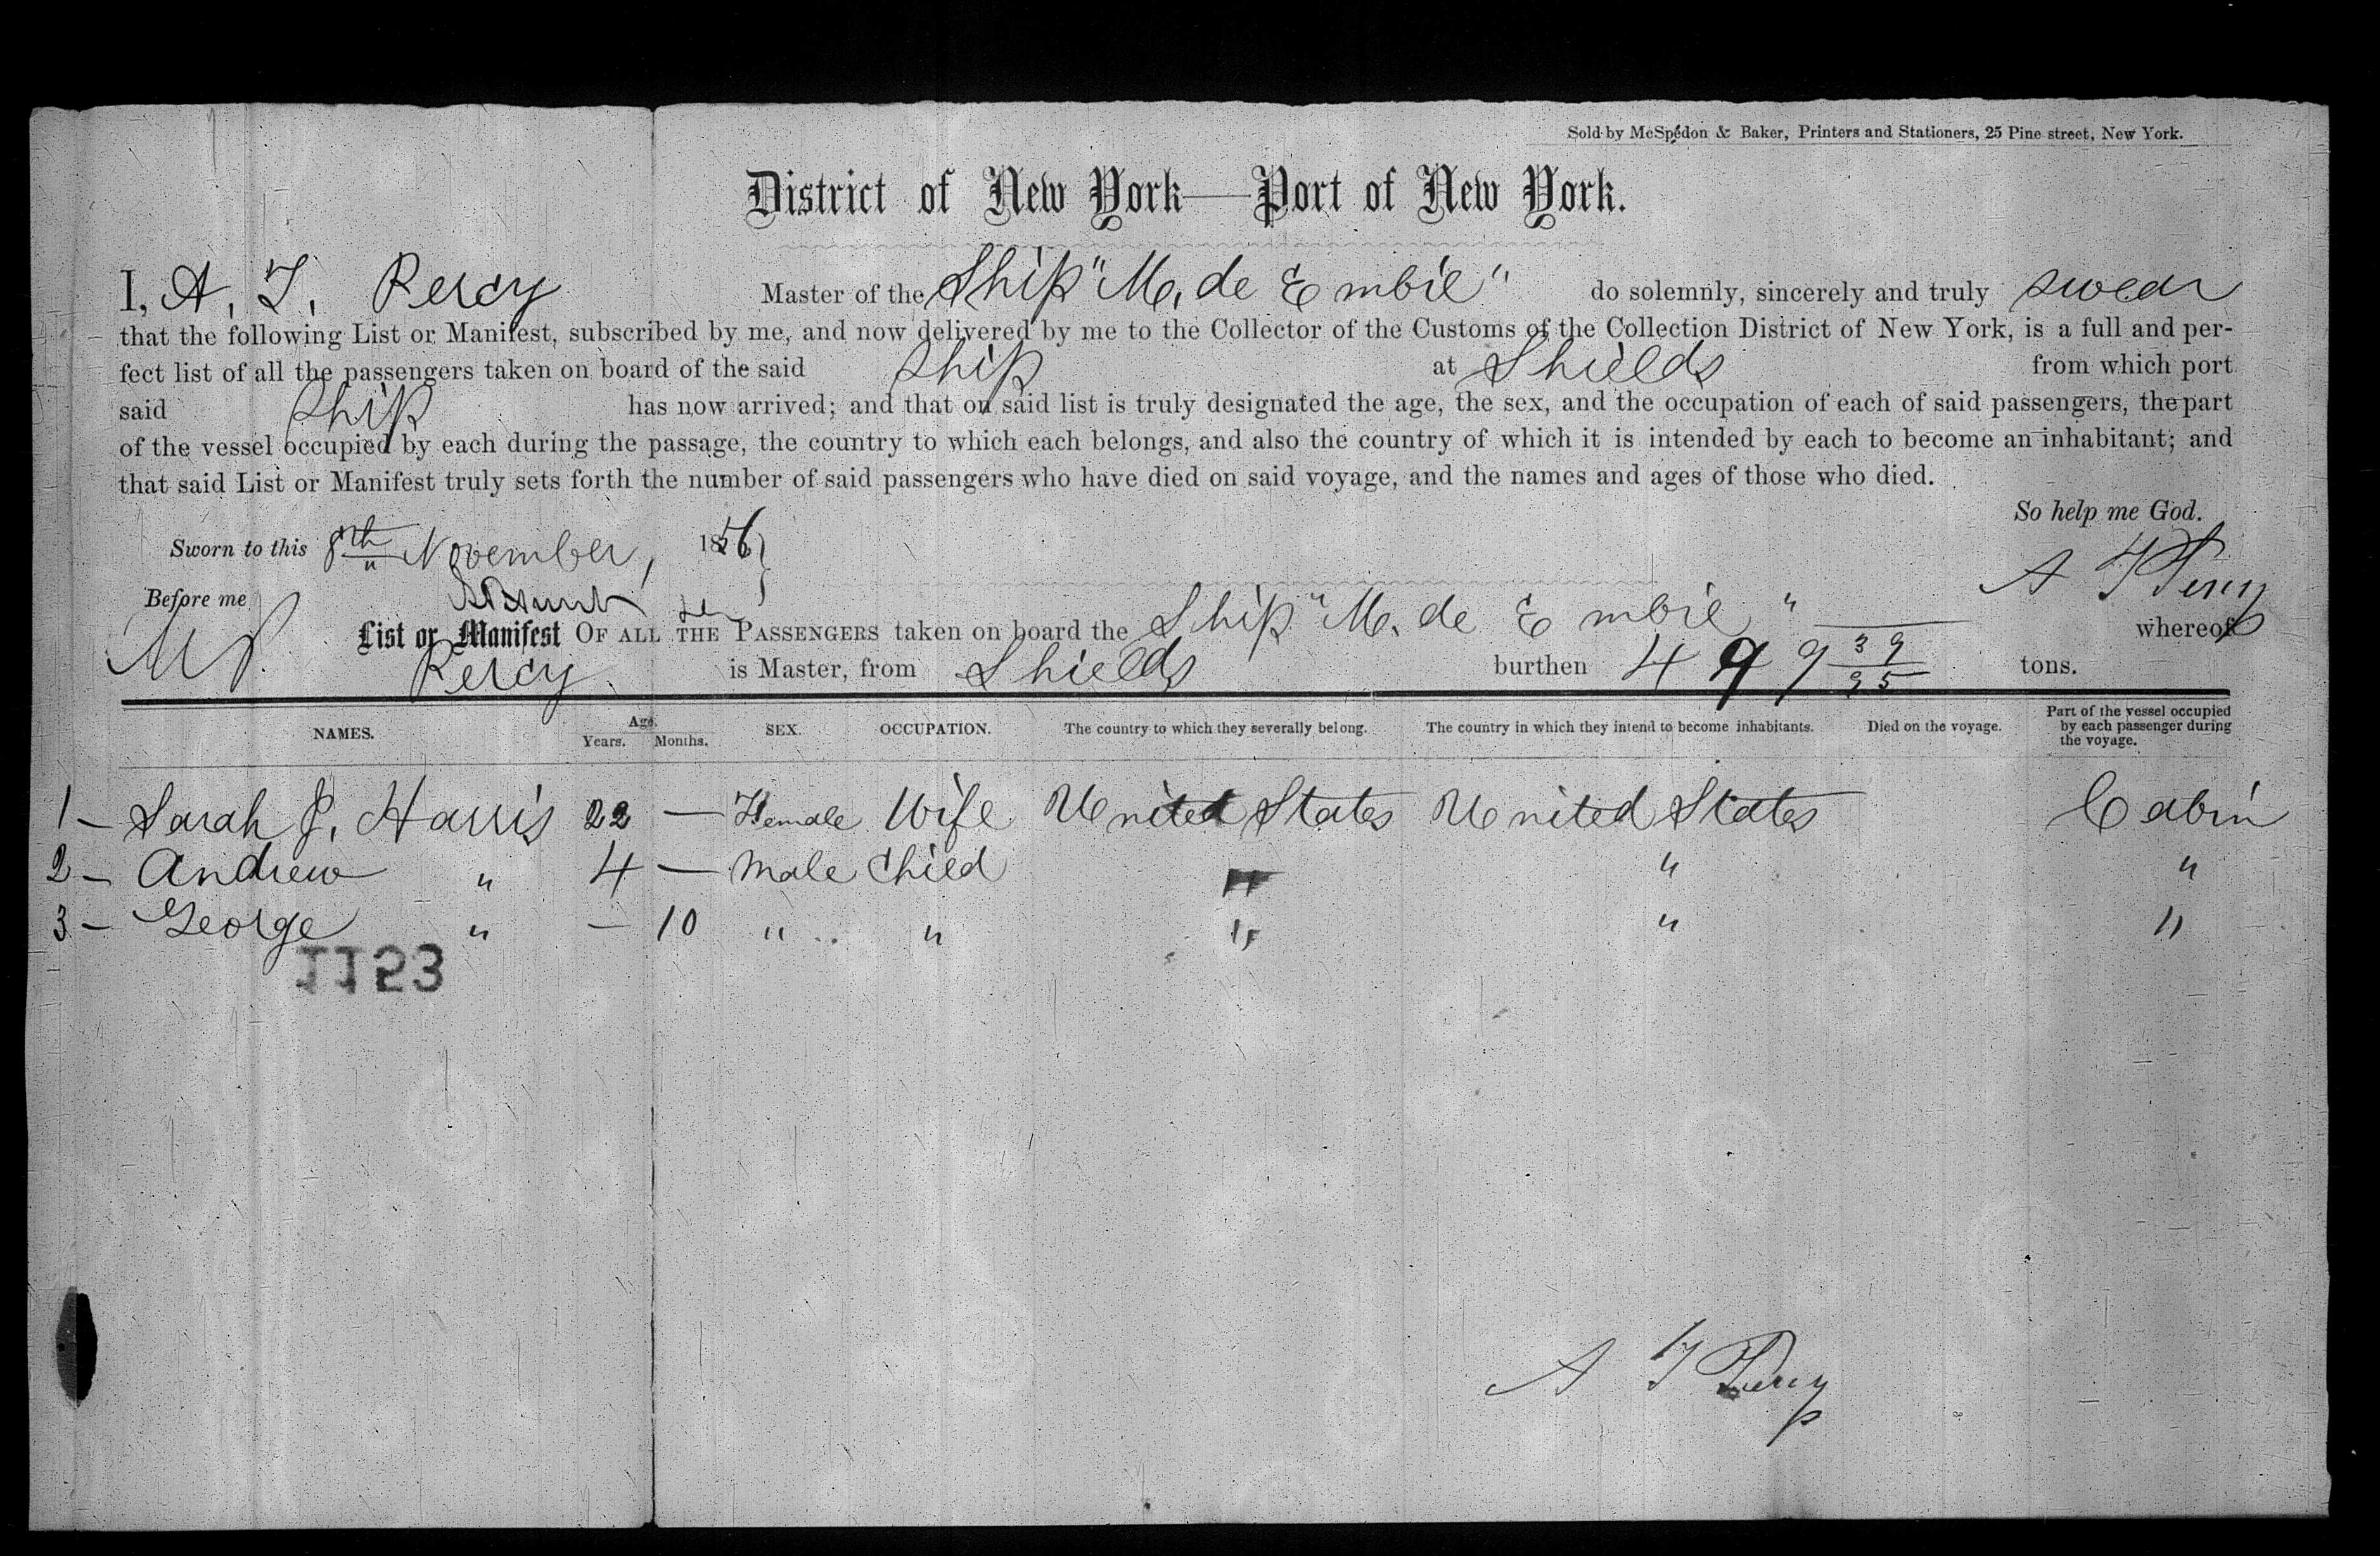 Sold by McSpedon & Baker, Printers and Stationers, 25 Pine street, New York.
District of New York—Port of New York.
I, A. F. Percy Master of the Ship "M. de Embil" do solemnly, sincerely and truly swear
that the following List or Manifest, subscribed by me, and now delivered by me to the Collector of the Customs of the Collection District of New York, is a full and per-
fect list of all the passengers taken on board of the said ship at Shields from which port
said ship has now arrived; and that on said list is truly designated the age, the sex, and the occupation of each of said passengers, the part
of the vessel occupied by each during the passage, the country to which each belongs, and also the country of which it is intended by each to become an inhabitant; and
that said List or Manifest truly sets forth the number of said passengers who have died on said voyage, and the names and ages of those who died.
So help me God.
Sworn to this 8th November, 1856
A F Percy
Before me
List or Manifest OF ALL THE PASSENGERS taken on board the Ship "M. de Embil" whereof
Percy is Master, from Shields burthen 499 39/95 tons.
NAMES. Age. Years. Months. SEX. OCCUPATION. The country to which they severally belong. The country in which they intend to become inhabitants. Died on the voyage. Part of the vessel occupied by each passenger during the voyage.
1 - Sarah J. Harris 22 — Female Wife United States United States Cabin
2 - Andrew " 4 — Male Child " " "
3 - George " — 10 " " " " "
1153
A F Percy